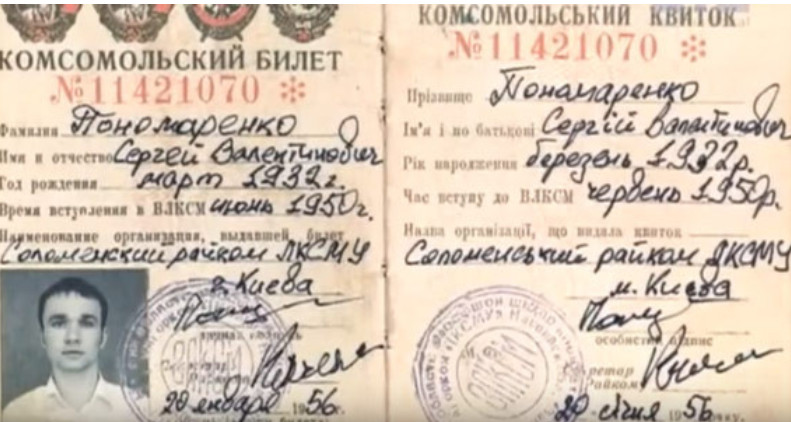 КОМСОМОЛЬСКИЙ БИЛЕТ
№11421070 *
Фамилия Пономаренко
Имя и отчество Сергей Валентинович
Год рождения март 1932 г.
Время вступления в ВЛКСМ июнь 1950 г.
Наименование организации, выдавшей билет
Соломенский райком ЛКСМУ
г. Киева
20 января 1956 г.
КОМСОМОЛЬСЬКИЙ КВИТОК
№11421070 *
Прізвище Пономаренко
Ім'я і по батькові Сергій Валентинович
Рік народження березень 1932 р.
Час вступу до ВЛКСМ червень 1950 р.
Назва організації, що видала квиток
Соломенський райком ЛКСМУ
м. Києва
особистий підпис
ВЛКСМ
райкому
20 січня 1956 року.